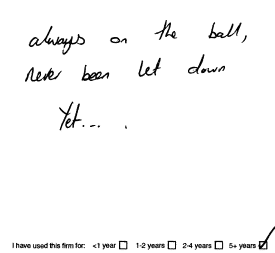 always on the ball,
never been let down
Yet... .
I have used this firm for: <1 year ☐ 1-2 years ☐ 2-4 years ☐ 5+ years ☑